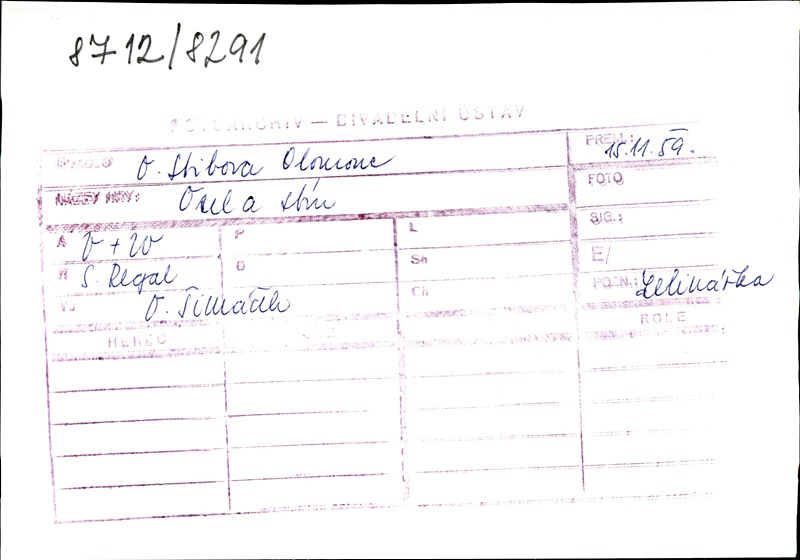 8712/8291
FOTOARCHIV — DIVADELNÍ ÚSTAV
DIVADLO O. Stibora Olomouc
PREM.: 15.11.59.
NÁZEV HRY: Osel a stín
FOTO
A V + W
P
L
SIG.:
R S. Regal
D
Sh
E/
Vý O. Šimáček
Ch
POZN.: Zelinářka
HEREC
ROLE
ROLE